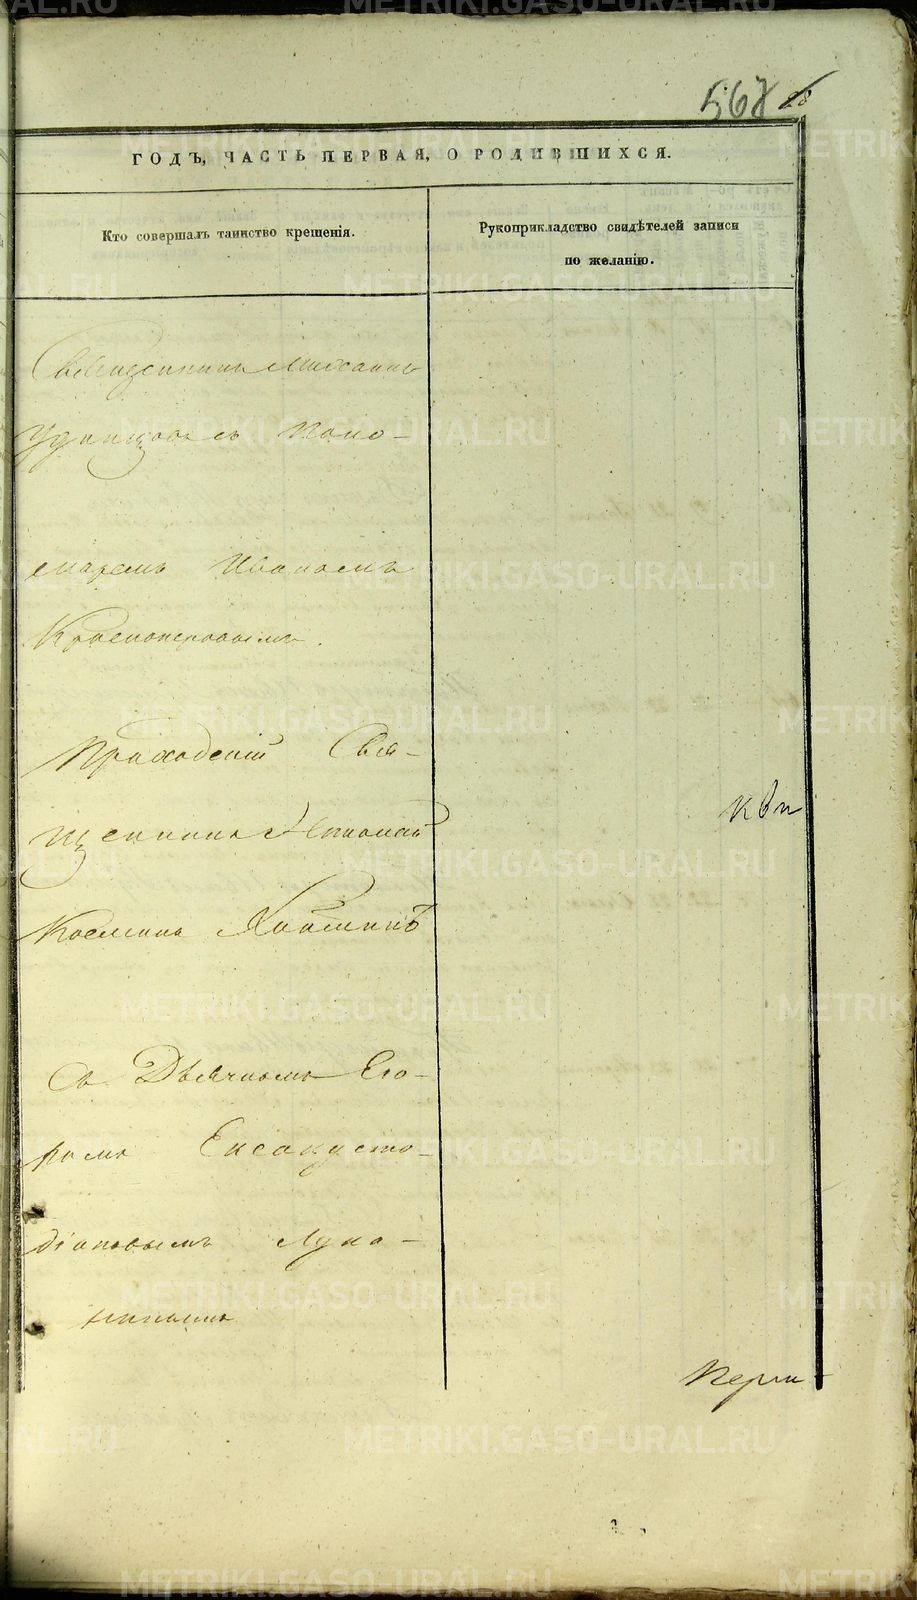 567 28
ГОДЪ, ЧАСТЬ ПЕРВАЯ, О РОДИВШИХСЯ.
Кто совершалъ таинство крещенія.
Рукоприкладство свидѣтелей записи
по желанію.
Священникъ Михаилъ
Удинцовъ съ Поно-
маремъ Иваномъ
Красноперовымъ.
Приходскій Свя-
щенникъ
Косминъ
Съ Дьячкомъ Его-
ромъ
діановымъ Лука-
нинымъ
Перм-
METRIKI.GASO-URAL.RU